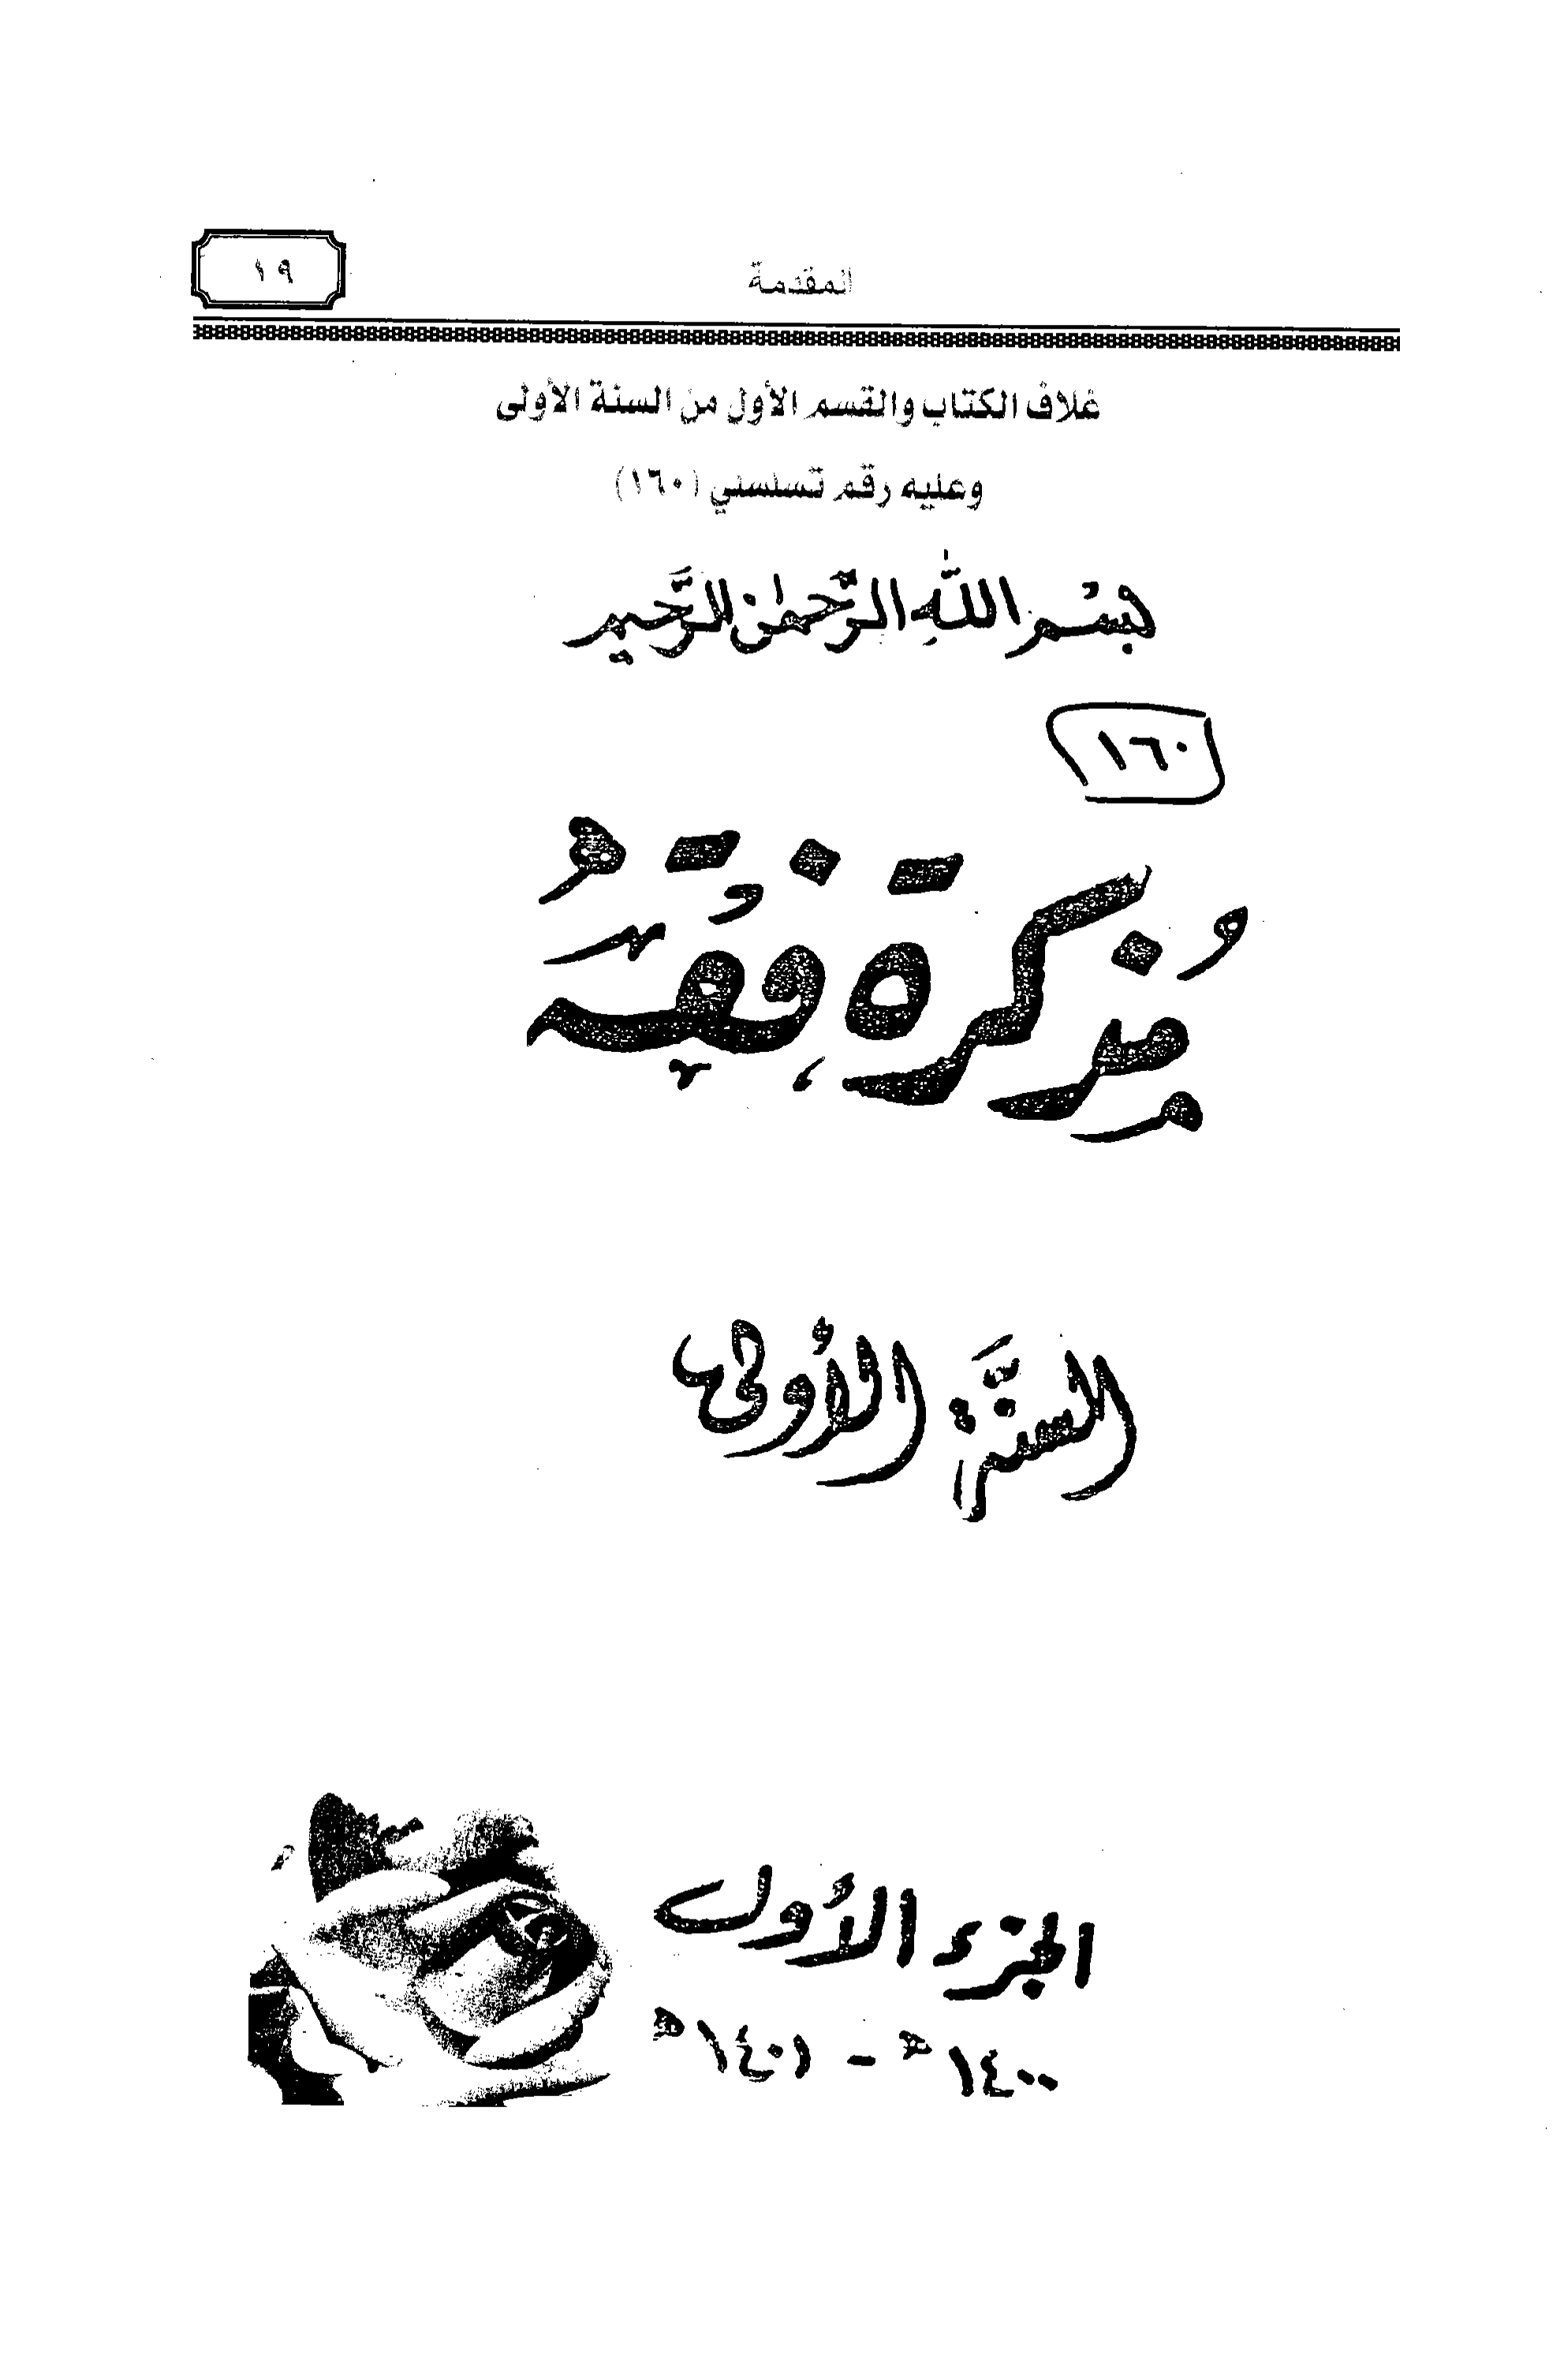 ١٩
المقدمة
غلاف الكتاب والقسم الأول من السنة الأولى
وعليه رقم تسلسلي (١٦٠)
بسم الله الرَّحمٰن الرَّحيم
١٦٠
مُذكرة فِقه
السنَّة الأُولى
الجزء الأُول
١٤٠٠ هـ - ١٤٠١ هـ